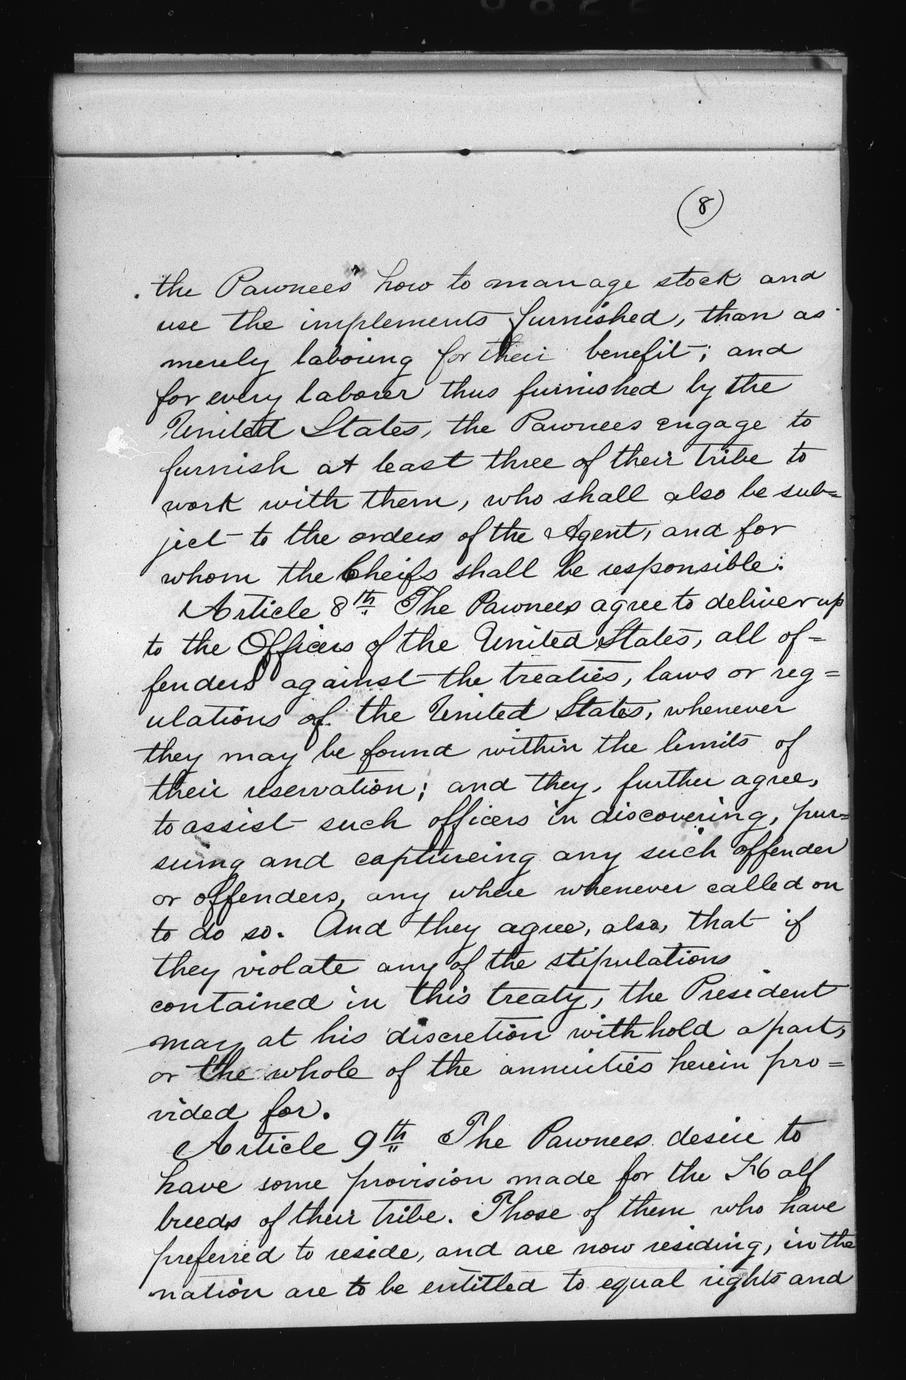 8
the Pawnees how to manage stock and
use the implements furnished, than as
merely laboring for their benefit; and
for every laborer thus furnished by the
United States, the Pawnees engage to
furnish at least three of their tribe to
work with them, who shall also be sub=
ject to the orders of the Agent, and for
whom the Cheifs shall be responsible.
Article 8th The Pawnees agree to deliver up
to the Officers of the United States, all of=
fenders against the treaties, laws or reg=
ulations of the United States, whenever
they may be found within the limits of
their reservation; and they, further agree,
to assist such officers in discovering, pur=
suing and captureing any such offender
or offenders, any where whenever called on
to do so. And they agree, also, that if
they violate any of the stipulations
contained in this treaty, the President
may, at his discretion withhold a part,
or the whole of the annuities herein pro=
vided for.
Article 9th The Pawnees desire to
have some provision made for the Half
breeds of their tribe. Those of them who have
preferred to reside, and are now residing, in the
nation are to be entitled to equal rights and